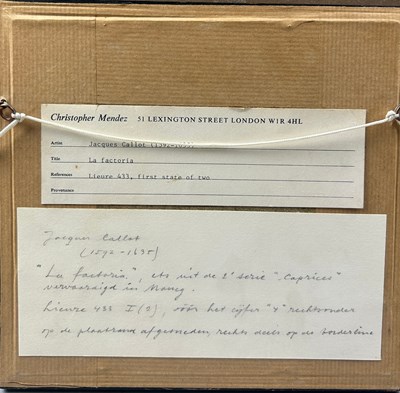 Christopher Mendez 51 LEXINGTON STREET LONDON W1R 4HL
Artist Jacques Callot (1592-1635)
Title La fattoria
Reference Lieure 433, first state of two
Provenance
Jacques Callot
(1592-1635)
"La fattoria", ets uit de 2e serie "Caprices"
vervaardigd in Nancy.
Lieure 433 I(2), vóór het cijfer "4" rechtsonder
op de plaatrand afgesneden, rechts deels op de borderline